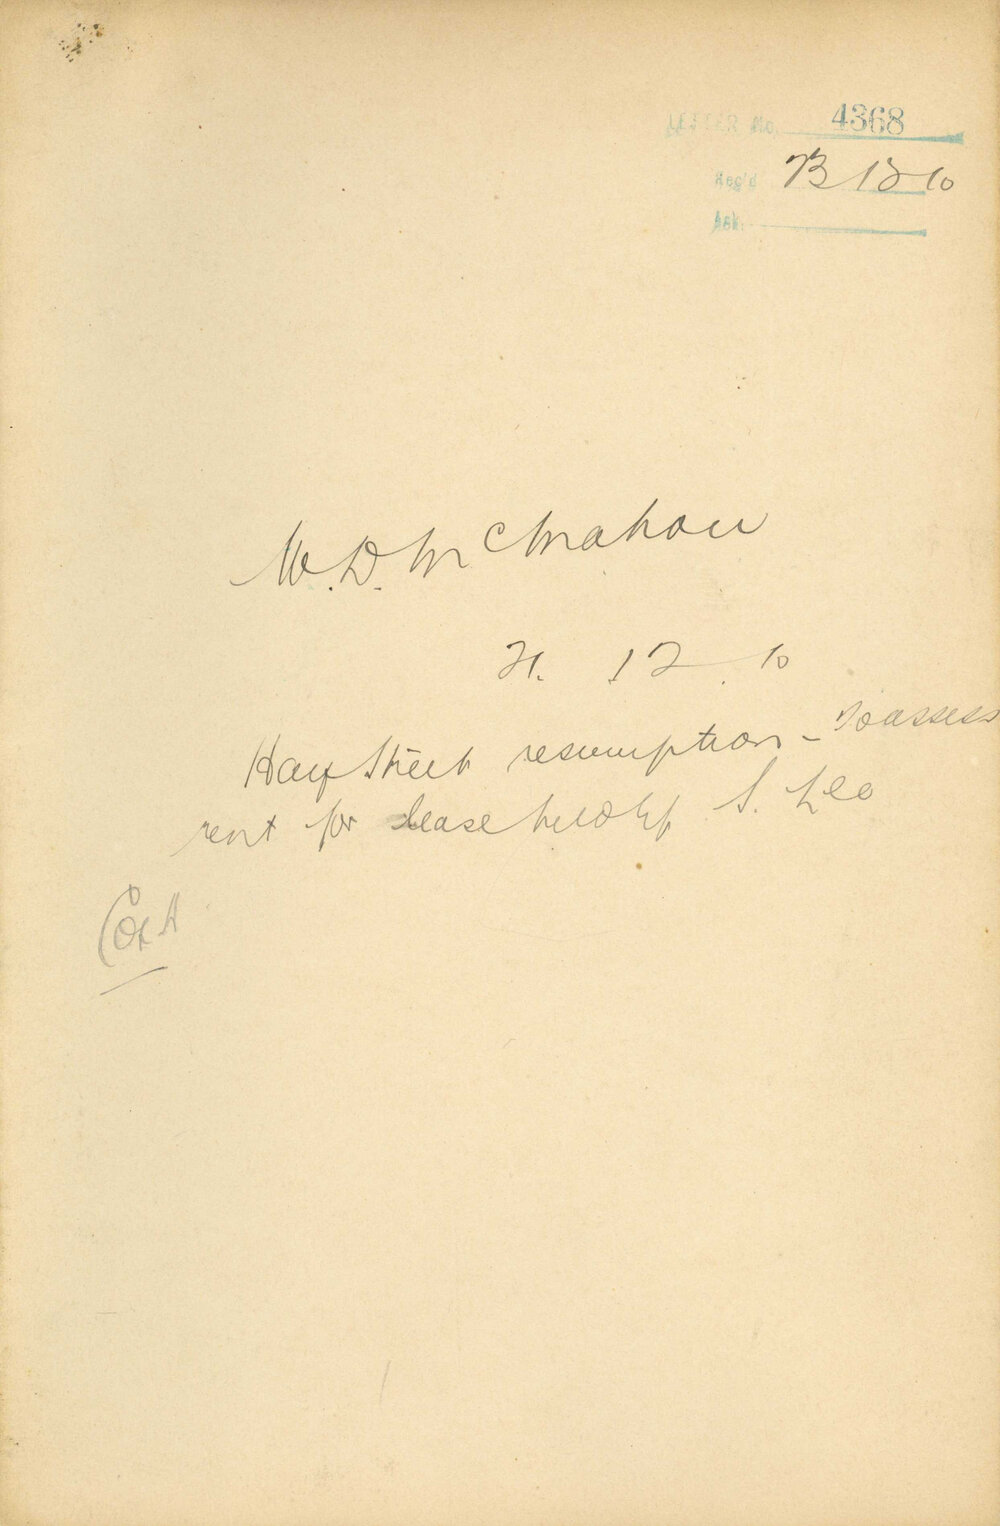 LETTER No. 4368
Rec'd 23 12 10
Ack.
W. D. McMahon
21. 12. 10
Hay Street resumption - To assess
rent for lease held by S. Leo